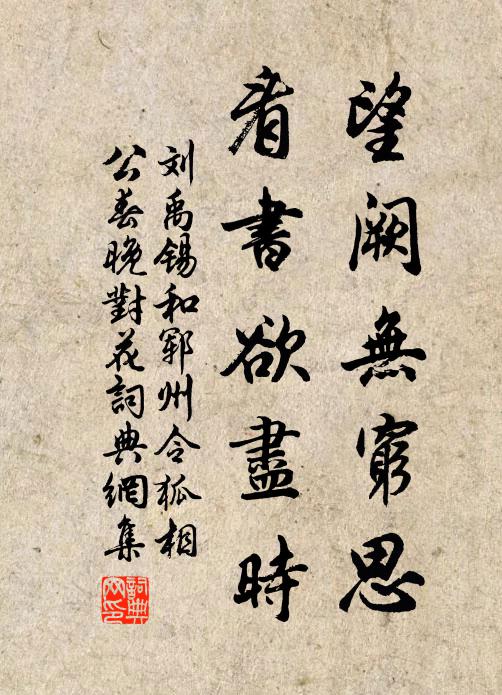 望阙無窮思
看書欲盡時
刘禹锡和郓州令狐相
公春晚對花詞典網集
詞典网印